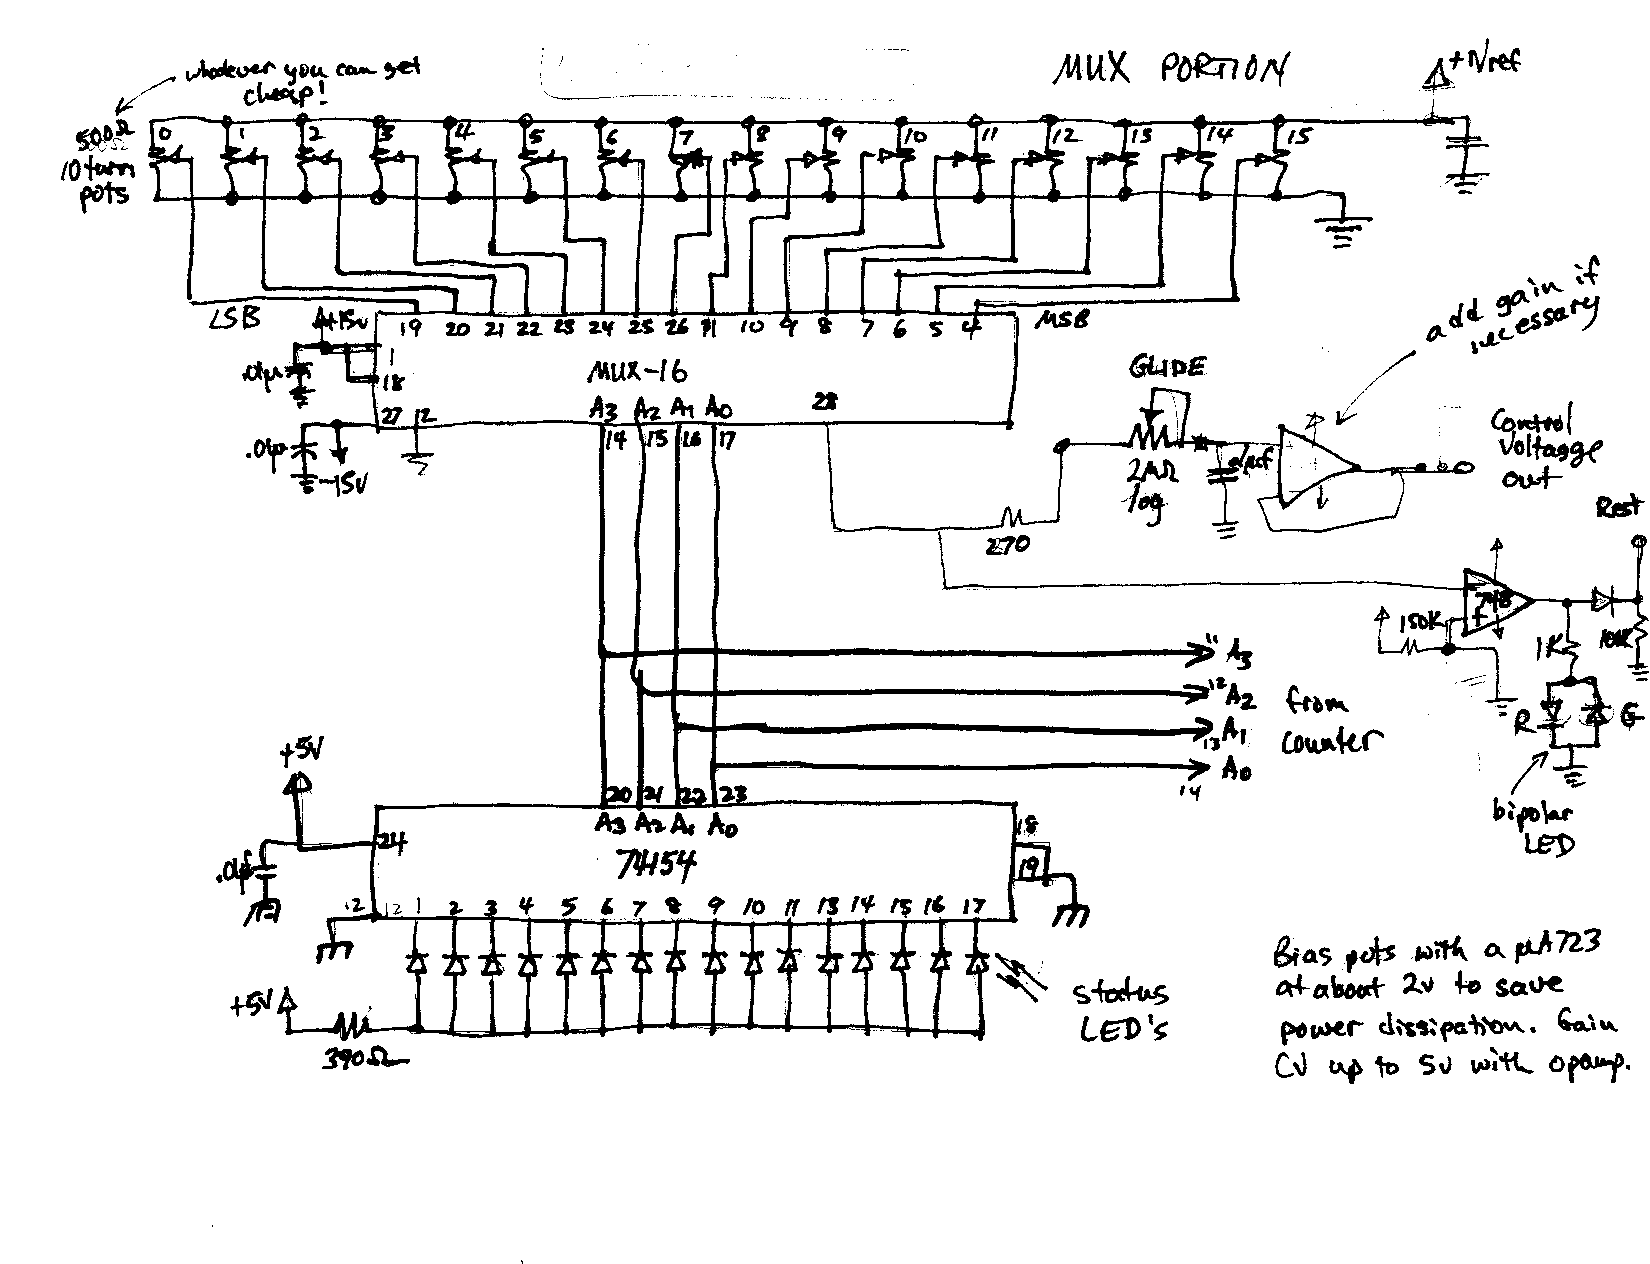 MUX PORTION
+Vref
whatever you can get
cheap!
500Ω
10 turn
pots
0 1 2 3 4 5 6 7 8 9 10 11 12 13 14 15
LSB
MSB
+15v
19 20 21 22 23 24 25 26 11 10 9 8 7 6 5 4
.01µ
1
18
MUX-16
27 12
A3 A2 A1 A0
28
14 15 16 17
.01µ
-15v
GLIDE
2MΩ
log
add gain if
necessary
Control
Voltagge
Out
270
Rest
748
-
+
150K
1K
R
G
bipolar
LED
11 A3
12 A2
13 A1
14 A0
from
counter
+5V
20 21 22 23
A3 A2 A1 A0
24
74154
18
19
.01µf
12 12 1 2 3 4 5 6 7 8 9 10 11 13 14 15 16 17
+5V
390Ω
status
LED's
Bias pots with a µA723
at about 2v to save
power dissipation. Gain
CV up to 5v with opamp.